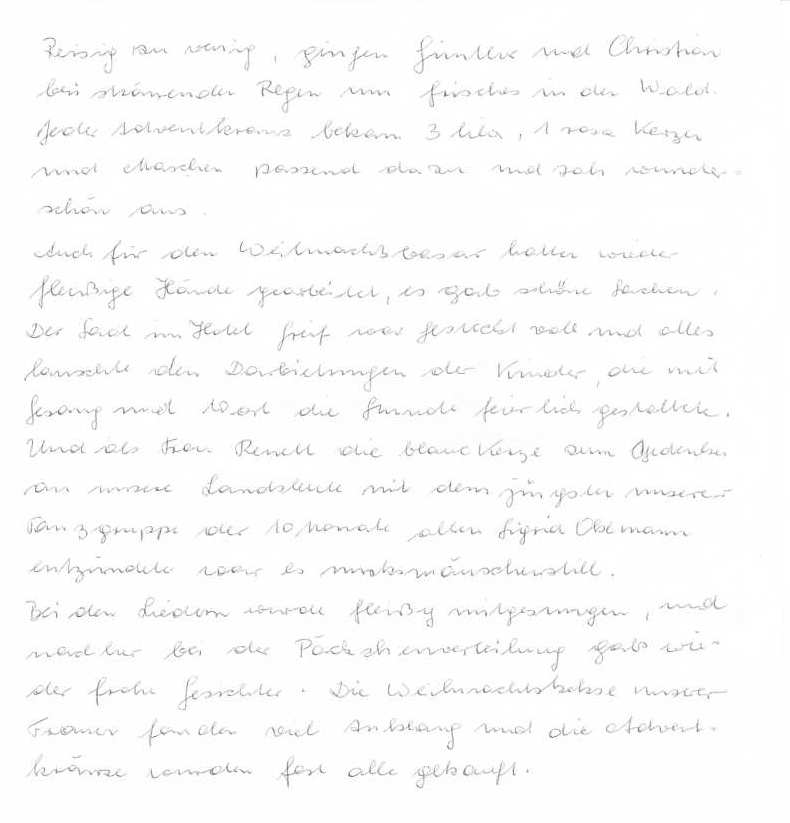 Reisig zu wenig, gingen Günther und Christian
bei strömender Regen um frisches in den Wald.
Jeder Adventkranz bekam 3 lila, 1 rosa Kerzen
und Maschen passend dazu und sah wunder-
schön aus.
Auch für den Weihnachtsbasar hatten wieder
fleißige Hände gearbeitet, es gab schöne Sachen.
Der Saal im Hotel Greif war gesteckt voll und alles
lauschte den Darbietungen der Kinder, die mit
Gesang und Wort die Stunde feierlich gestaltete.
Und als Frau Renelt die blaue Kerze zum Gedenken
an unsere Landsleute mit dem jüngsten unserer
Tanzgruppe der 10 Monate alten Sigrid
entzündete war es mucksmäuschenstill.
Bei den Liedern wurde fleißig mitgesungen, und
nachher bei der Päckchenverteilung gab wie-
der frohe Gesichter. Die Weihnachtskekse unserer
Frauen fanden viel Anklang und die Advent-
kränze wurden fast alle gekauft.